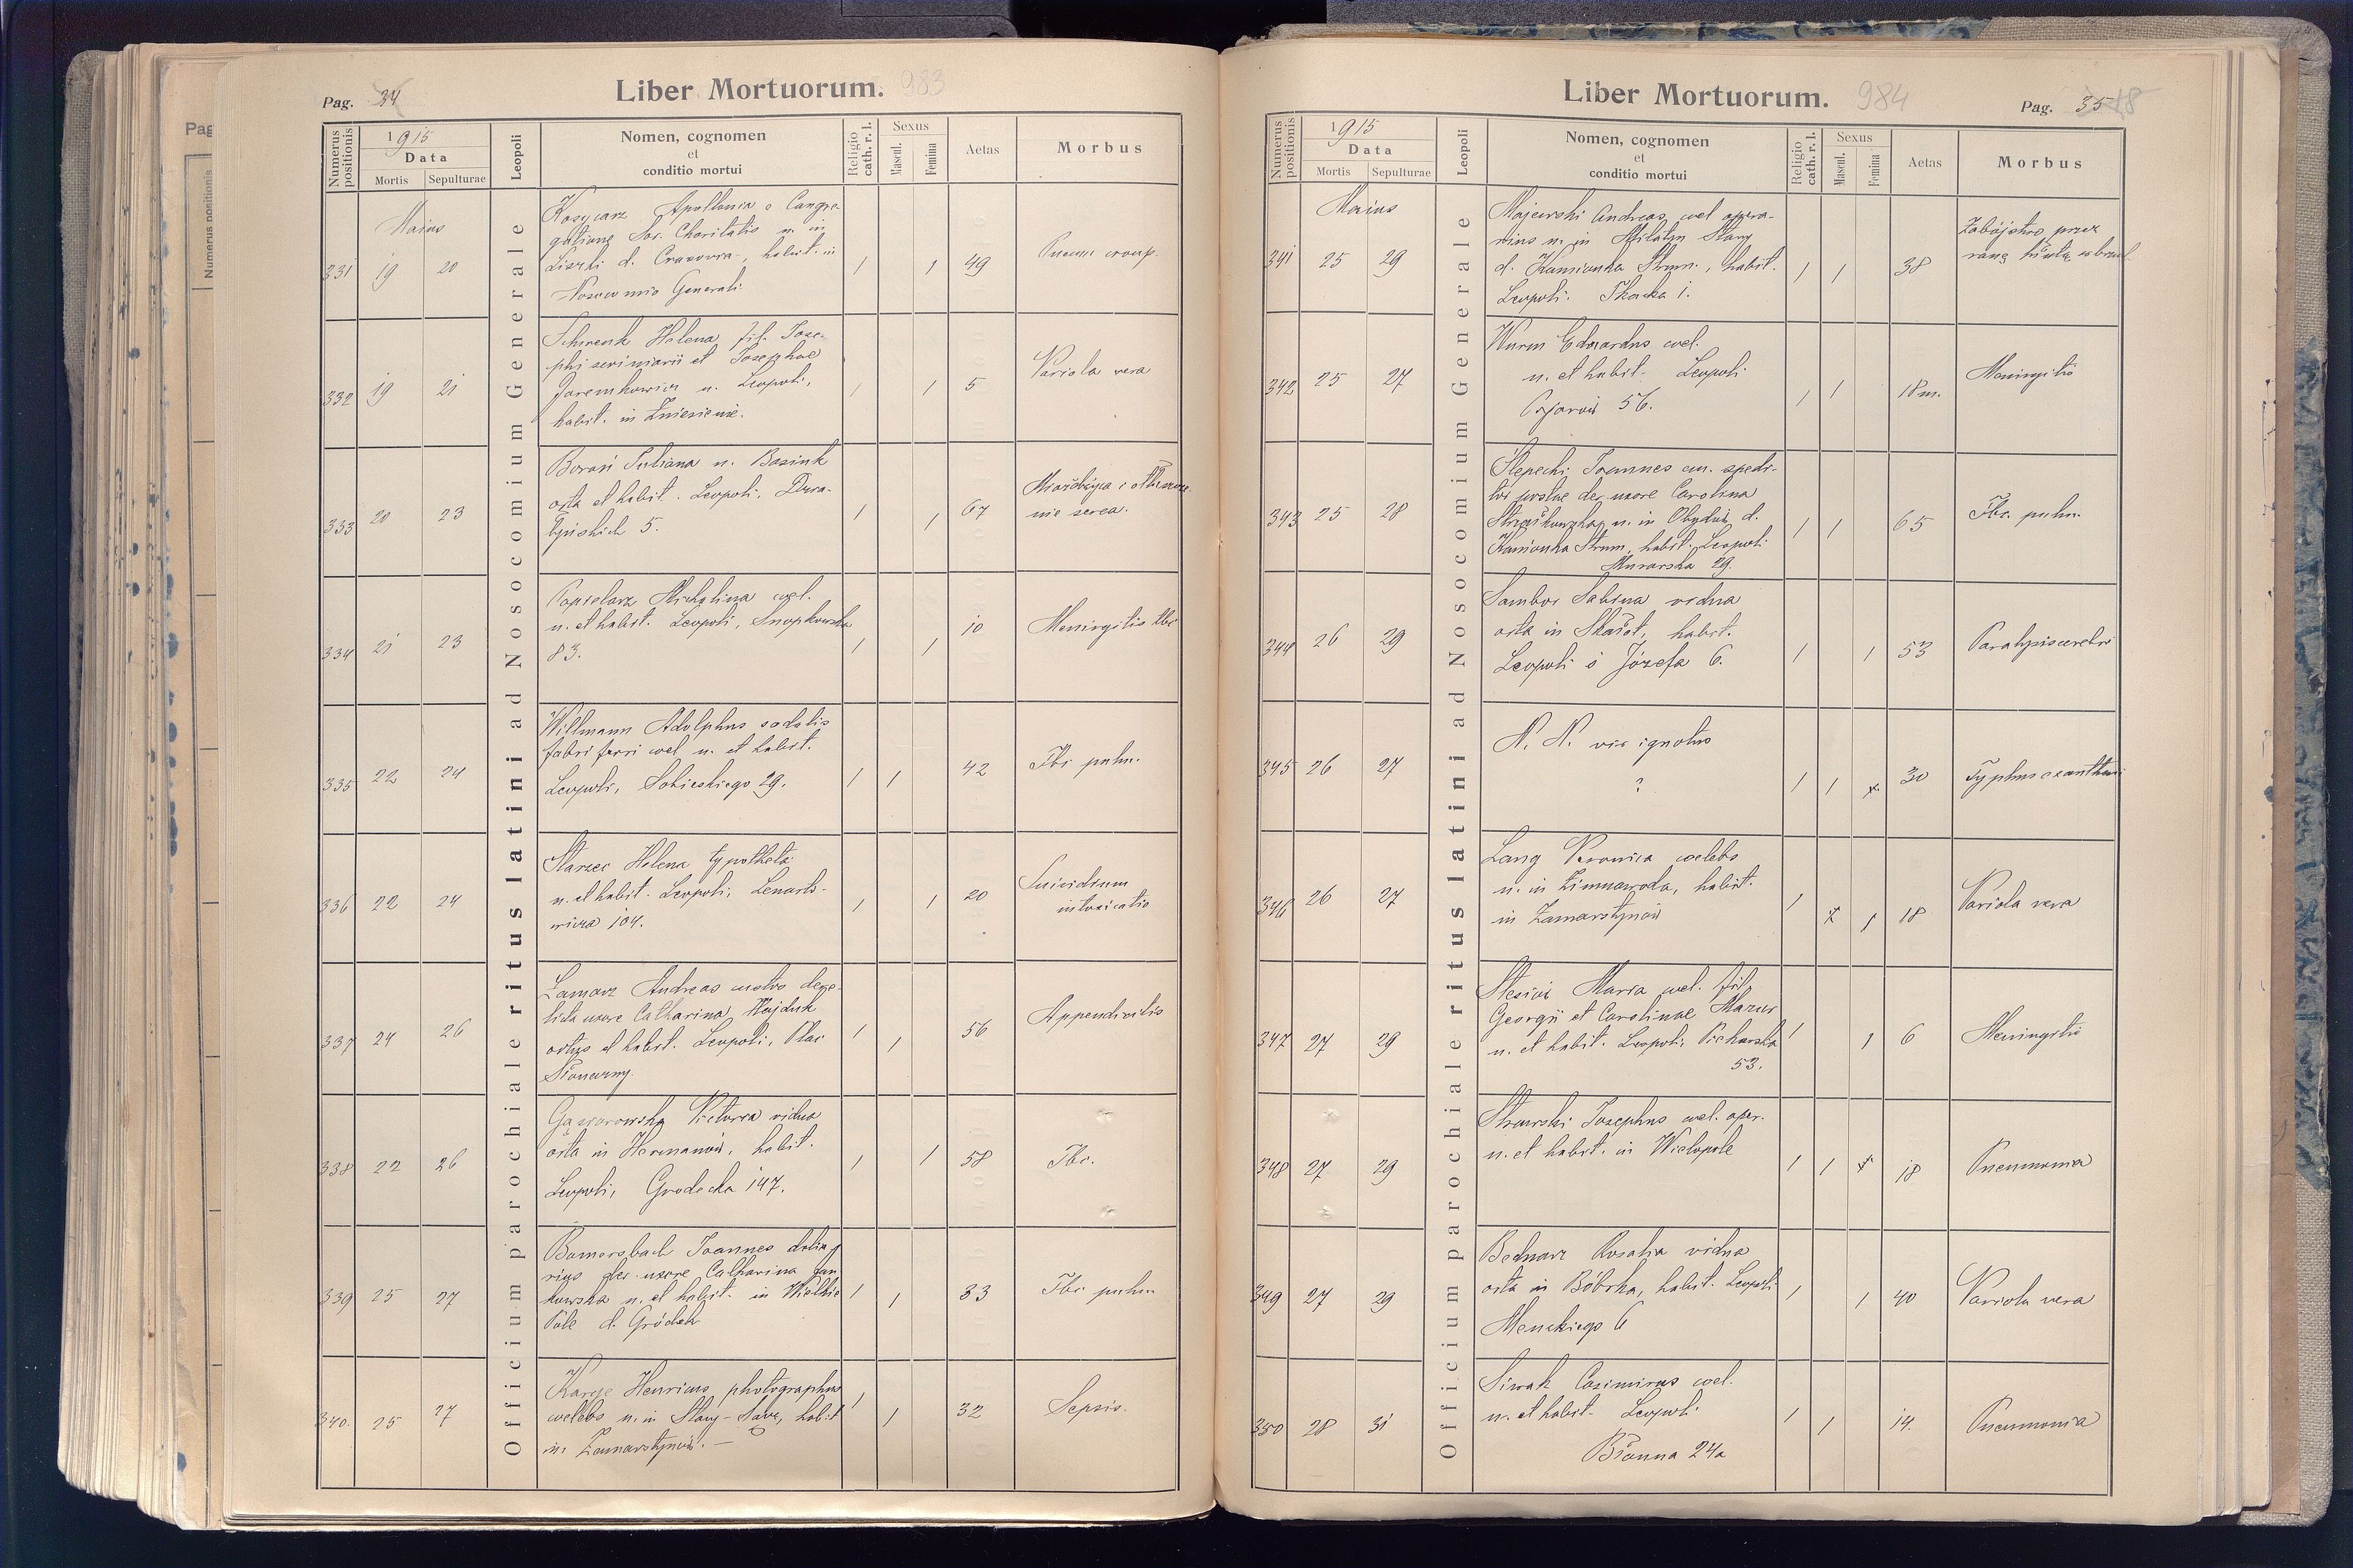 Liber Mortuorum. 983
Pag. 34
Numerus positionis
1915
Data
Mortis Sepulturae
Leopoli
Nomen, cognomen
et
conditio mortui
Religio cath. r. l.
Sexus
Mascul. Femina
Aetas
Morbus
Officium parochiale ritus latini ad Nosocomium Generale
Maius
331 19 20
Kosycarz Apollonia e Congre-
gatione Sor. Charitatis n. in
Liszki d. Cracovia, habit. in
Nosocomio Generali
1 1 49
Pneum. croup.
332 19 21
Schrenk Helena fil. Jose-
phi scriniarii et Josephae
Jaremkowicz n. Leopoli,
habit. in Zniesienie.
1 1 5
Variola vera
333 20 23
Boroń Juliana n. Basiuk
orta et habit. Leopoli,
5.
1 1 67
Miażdżyca i otłuszcze-
nie serca.
334 21 23
Popielarz Michalina coel.
n. et habit. Leopoli, Snopkowska
83.
1 1 10
Meningitis tbc
335 22 24
Willmann Adolphus sodalis
fabri ferri coel. n. et habit.
Leopoli, Sobieskiego 29.
1 1 42
Tbc pulm.
336 22 24
Starzec Helena typotheta
n. et habit. Leopoli, Lenarto-
wicza 104.
1 1 20
Suicidium
intoxicatio
337 24 26
Lamarz Andreas custos dere-
licta uxore Catharina Hajduk
ortus et habit. Leopoli, Plac
Słoneczny.
1 1 56
Appendicitis
338 22 26
Gąsiorowska Victoria vidua
orta in Hermanów, habit.
Leopoli, Grodecka 147.
1 1 58
Tbc.
339 25 27
Bomersbach Joannes dolia-
rius der. uxore Catharina Jan-
kowska n. et habit. in Wielkie
Pole d. Gródek
1 1 33
Tbc pulm.
340. 25 27
Karge Henricus photographus
coelebs n. in Stary-Sącz, habit
in Zamarstynów. —
1 1 32
Sepsis.
Liber Mortuorum. 984
Pag. 35
Numerus positionis
1915
Data
Mortis Sepulturae
Leopoli
Nomen, cognomen
et
conditio mortui
Religio cath. r. l.
Sexus
Mascul. Femina
Aetas
Morbus
Officium parochiale ritus latini ad Nosocomium Generale
Maius
341 25 29
Majewski Andreas coel. opera-
rius n. in Milatyn Stary
d. Kamionka Strum., habit.
Leopoli. Tkacka 1.
1 1 38
Zabójstwo przez
ranę kłutą w brzuch
342 25 27
Wurm Edwardus coel.
n. et habit. Leopoli
56.
1 1 18 m.
Meningitis
343 25 28
Slepecki Joannes em. spedi-
tor postae der. uxore Carolina
n. in Obydów d.
Kamionka Strum, habit. Leopoli
Murarska 29.
1 1 65
Tbc. pulm.
344 26 29
Sambor Sabina vidua
orta in Skałat, habit.
Leopoli ś Józefa 6.
1 1 53
Paralysis cerebri
345 26 27
N. N. vir ignotus
?
1 1 x 30
Typhus exanthem
346 26 27
Lang Veronica coelebs
n. in Zimnawoda, habit.
in Zamarstynów
1 x 1 18
Variola vera
347 27 29
Stesiów Maria coel. fil.
Georgii et Carolinae Mazur
n. et habit. Leopoli, Piekarska
53.
1 1 6
Meningitis
348 27 29
Josephus coel. oper.
n. et habit. in Wielopole
1 1 x 18
Pneumonia
349 27 29
Bednarz Rosalia vidua
orta in Bóbrka, habit. Leopoli
6
1 1 40
Variola vera
350 28 31
Siwak Casimirus coel.
n. et habit. Leopoli
Błonna 24a
1 1 14.
Pneumonia